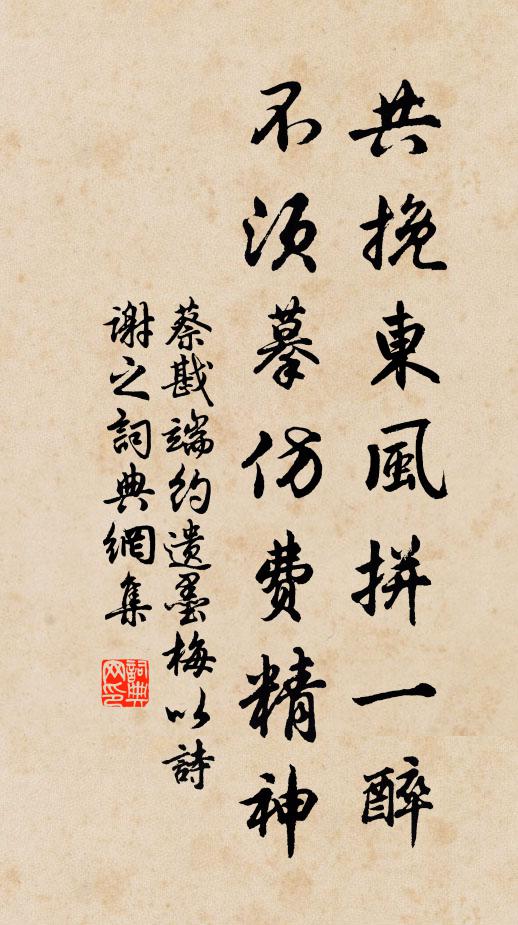 共挽東風拼一醉
不須摹仿費精神
蔡戡端約遺墨梅以詩
謝之詞典網集
詞典網印